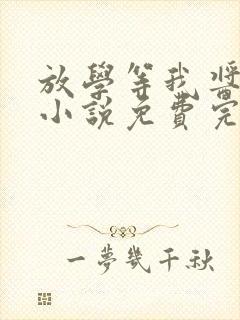 放學等我 醬
小說免費完
一夢幾千秋